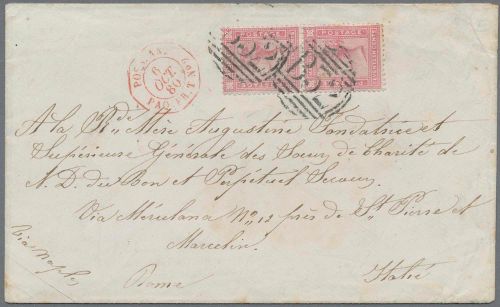 POSTAGE POSTAGE
B53 B53
6
OC 7
80
A la Rde Mère Augustine Fondatrice et
Supérieure Générale des Soeurs de Charité de
N. D. du Bon et Perpétuel Secours
Via Merulana No 12 près de St Pierre et
Marcelin
Via Naples
Rome Italie